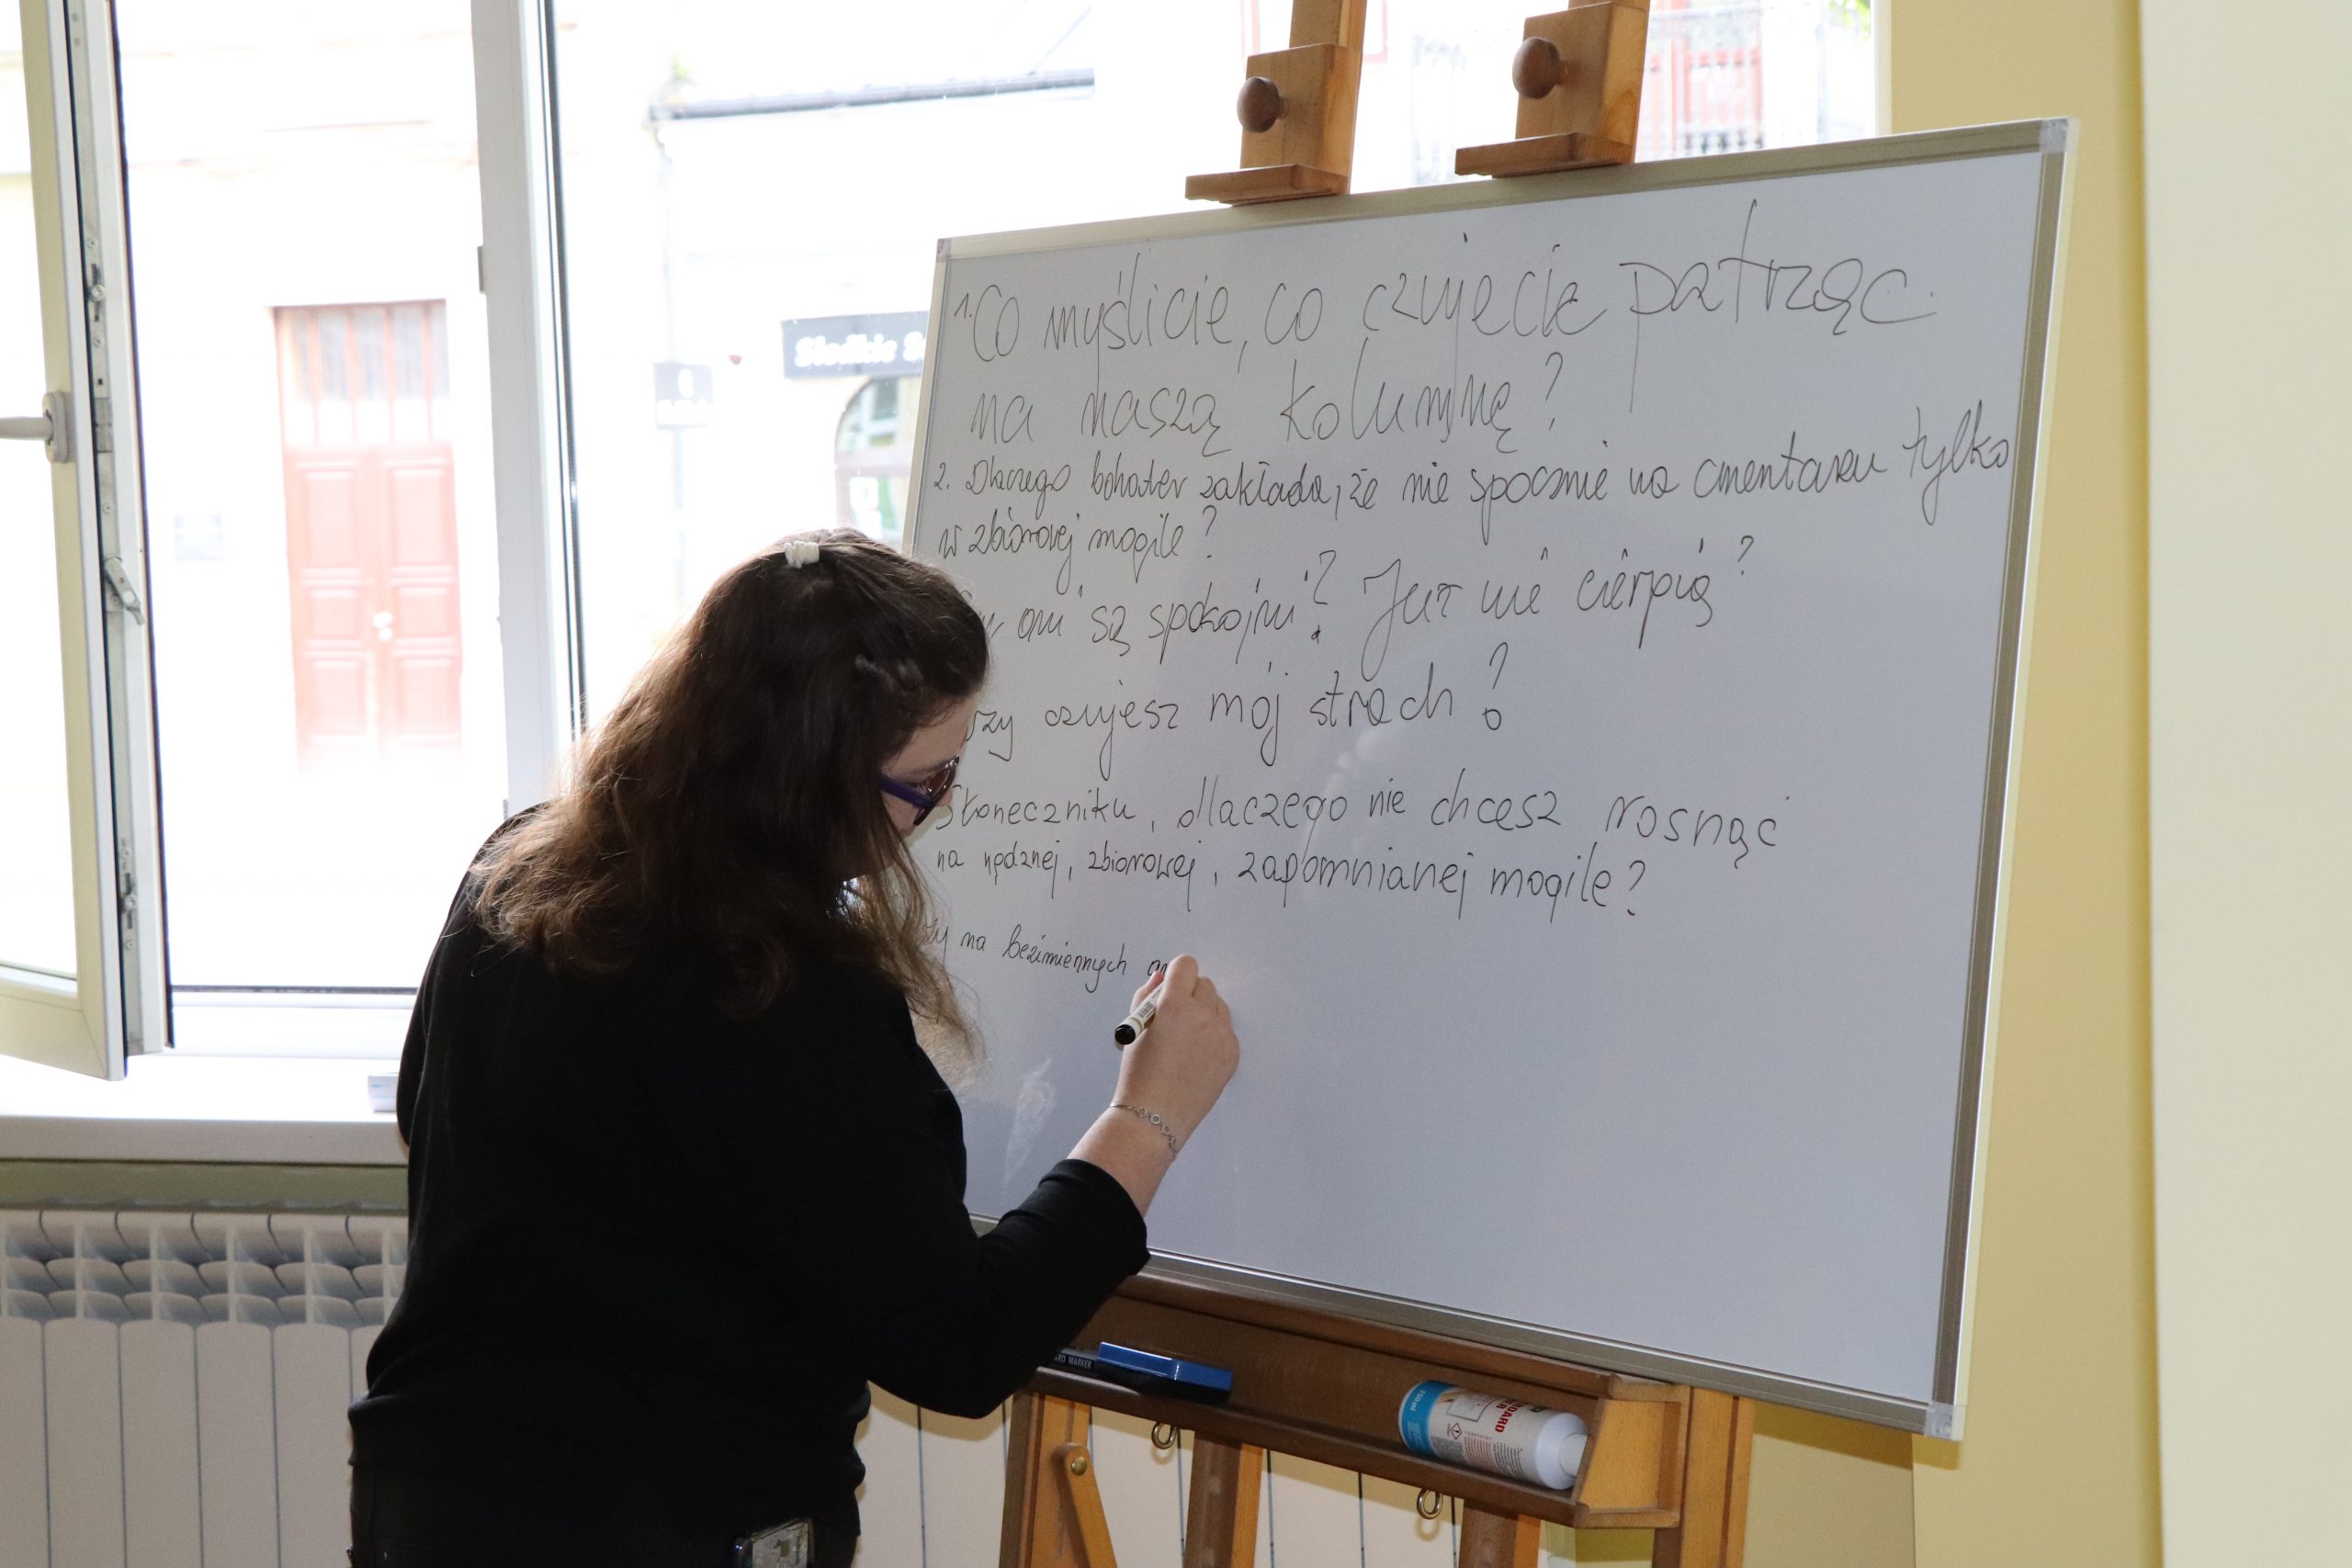 Słodkie
1. Co myślicie, co czujecie patrząc
na naszą kolumnę?
2. Dlaczego bohater zakłada, że nie spocznie na cmentarzu tylko
w zbiorowej mogile?
oni są spokojni? Już nie cierpią?
czujesz mój strach?
Słoneczniku, dlaczego nie chcesz rosnąć
na nędznej, zbiorowej, zapomnianej mogile?
na bezimiennych
MARKER